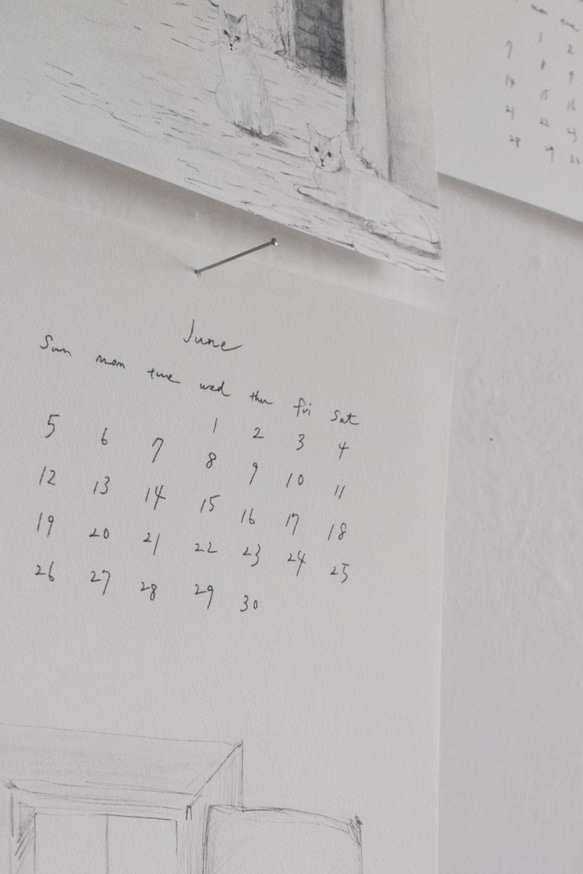 June
Sun mon tue wed thu fri sat
1 2 3 4
5 6 7 8 9 10 11
12 13 14 15 16 17 18
19 20 21 22 23 24 25
26 27 28 29 30
mon
1 2
7 8 9
14 15
21 22
28 29